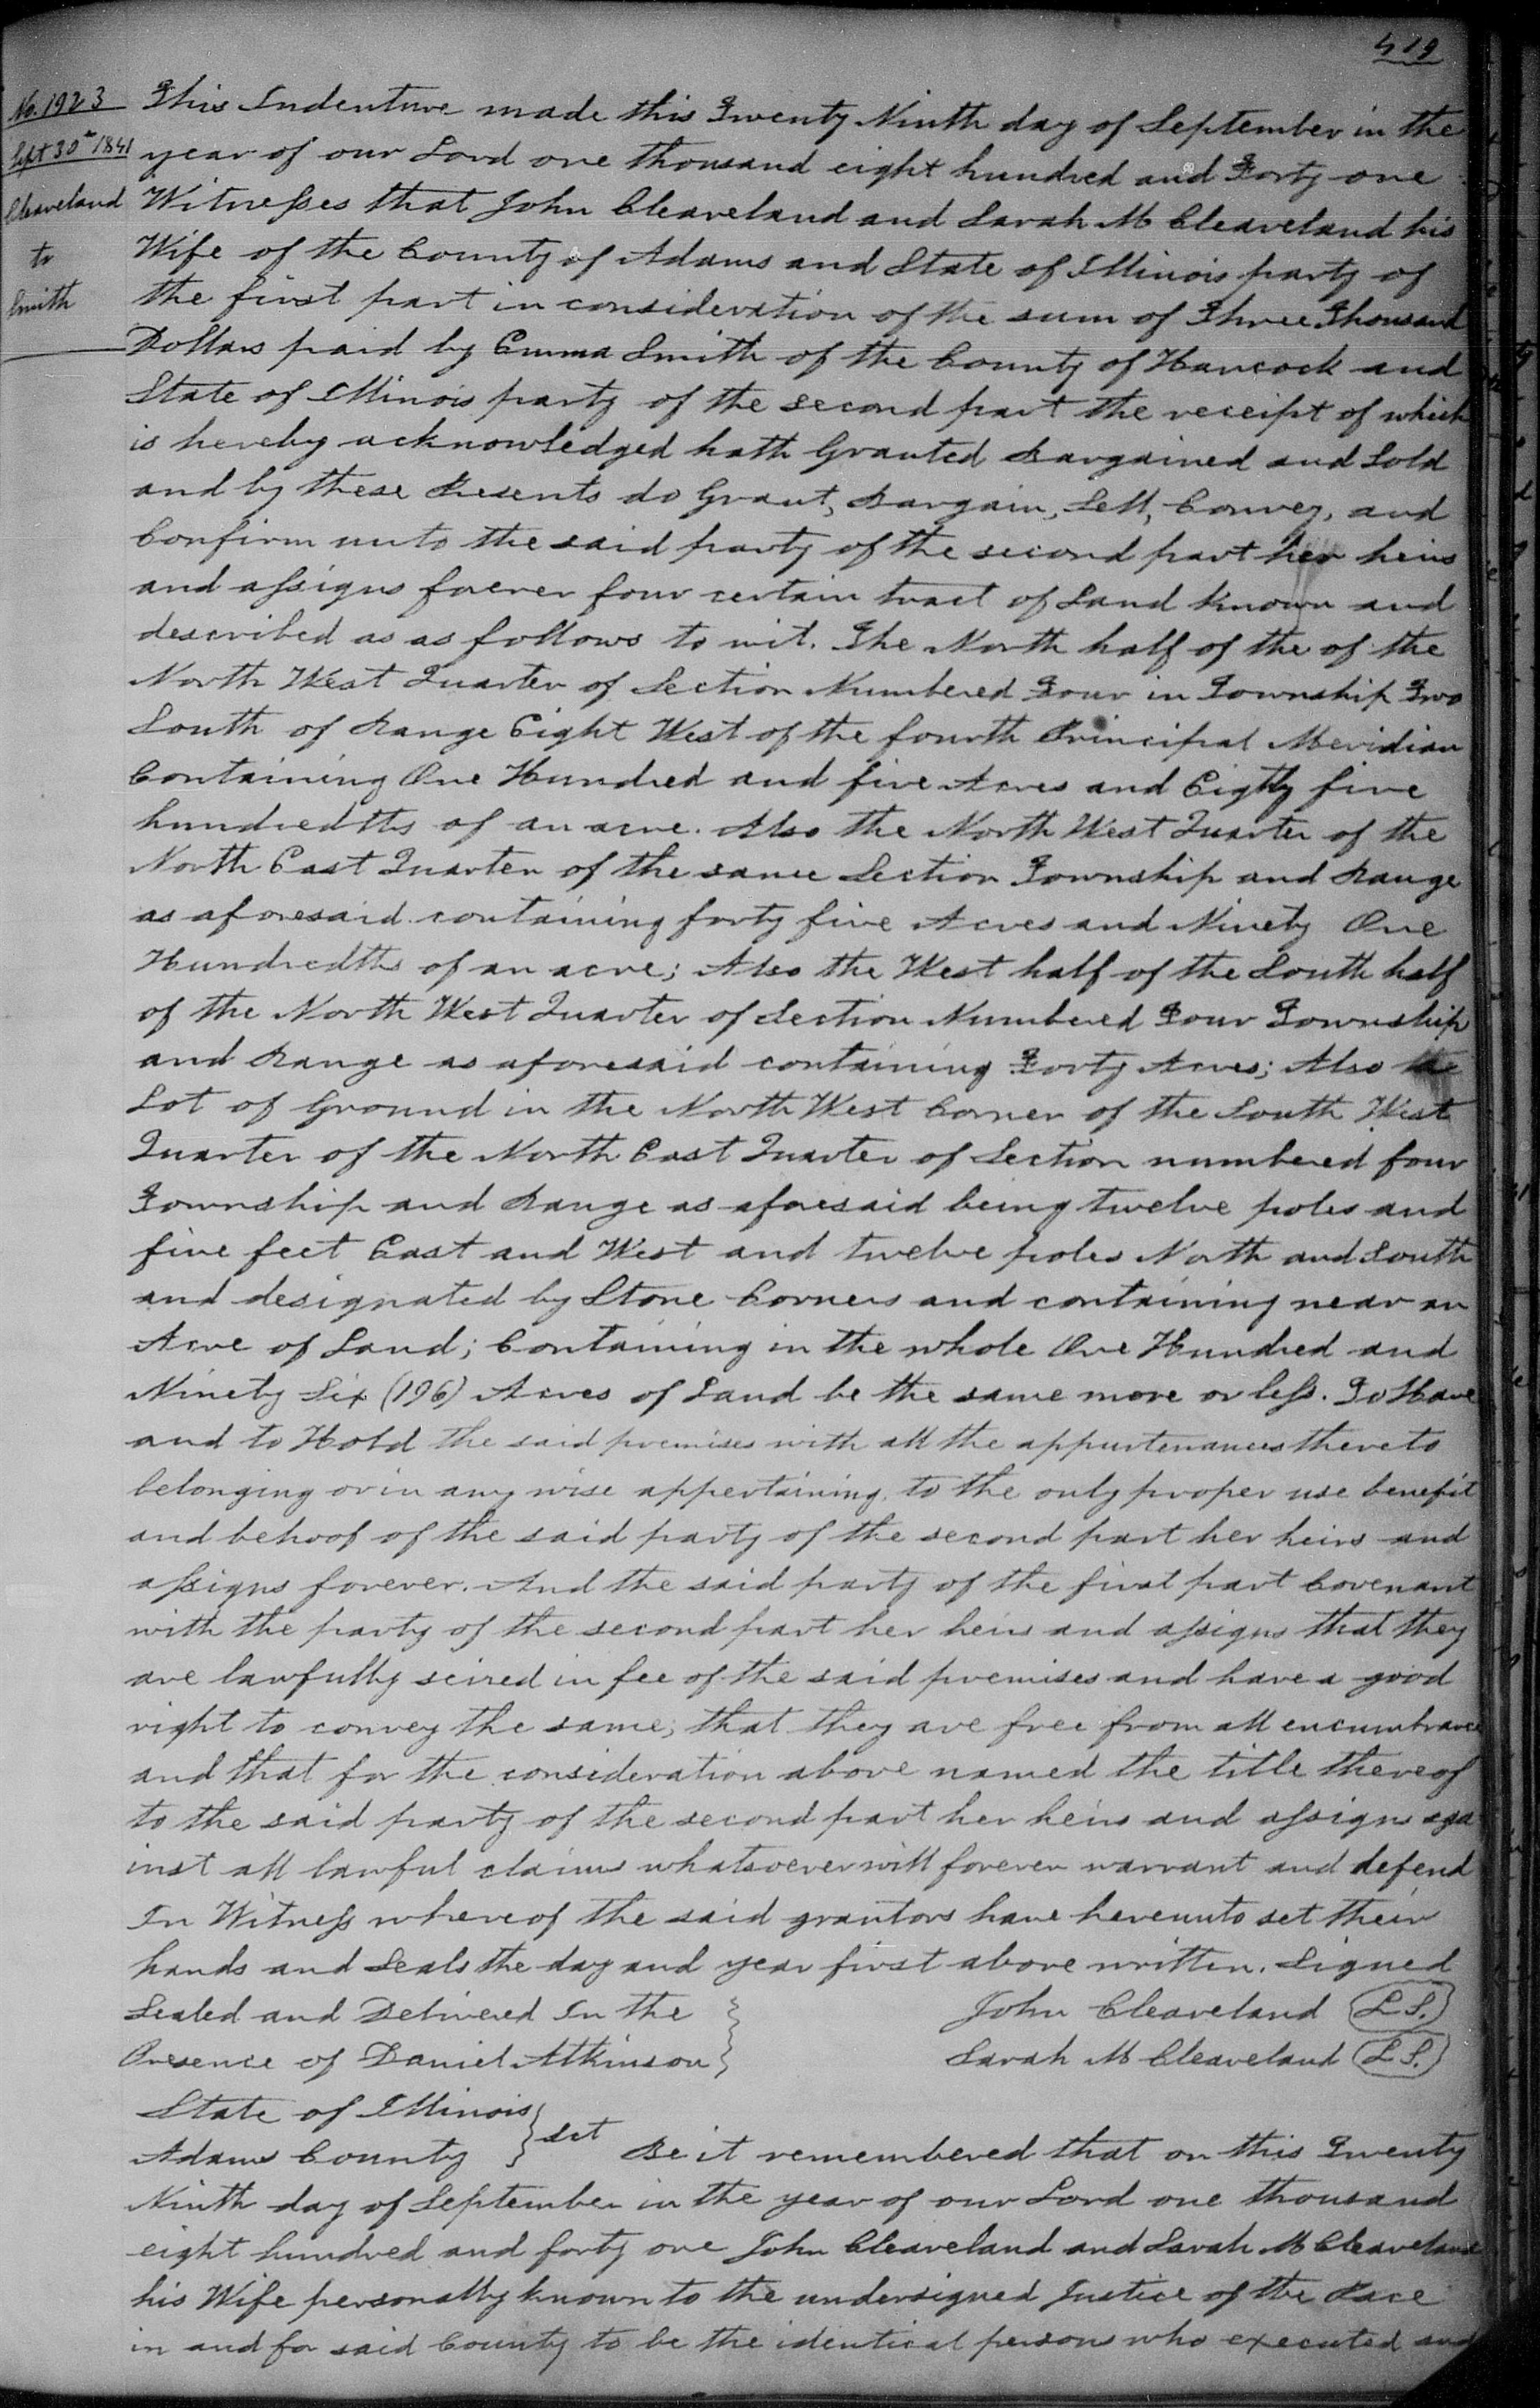 419
No. 1923
Sept 30th 1841
Cleaveland
to
Smith
This Indenture made this Twenty Ninth day of September in the
year of our Lord one thousand eight hundred and Forty one
Witnesses that John Cleaveland and Sarah M Cleaveland his
Wife of the County of Adams and State of Illinois party of
the first part in consideration of the sum of Three Thousand
Dollars paid by Emma Smith of the County of Hancock and
State of Illinois party of the second part the receipt of which
is hereby acknowledged hath Granted Bargained and Sold
and by these Presents do Grant, Bargain, Sell, Convey, and
Confirm unto the said party of the second part her heirs
and assigns forever four certain tract of Land known and
described as as follows to wit. The North half of the of the
North West Quarter of Section Numbered Four in Township Two
South of Range Eight West of the fourth Principal Meridian
Containing One Hundred and five Acres and Eighty five
hundredths of an acre. Also the North West Quarter of the
North East Quarter of the same Section Township and Range
as aforesaid containing forty five Acres and Ninety One
Hundredths of an acre; Also the West half of the South half
of the North West Quarter of Section Numbered Four Township
and Range as aforesaid containing Forty Acres; Also
Lot of Ground in the North West Corner of the South West
Quarter of the North East Quarter of Section numbered four
Township and Range as aforesaid being twelve poles and
five feet East and West and twelve poles North and South
and designated by Stone Corners and containing near an
Acre of Land; Containing in the whole One Hundred and
Ninety Six (196) Acres of Land be the same more or less. To Have
and to Hold the said premises with all the appurtenances thereto
belonging or in any wise appertaining, to the only proper use benefit
and behoof of the said party of the second part her heirs and
assigns forever. And the said party of the first part Covenant
with the party of the second part her heirs and assigns that they
are lawfully seized in fee of the said premises and have a good
right to convey the same; that they are free from all encumbrance
and that for the consideration above named the title thereof
to the said party of the second part her heirs and assigns aga
inst all lawful claims whatsoever will forever warrant and defend
In Witness whereof the said grantors have hereunto set their
hands and Seals the day and year first above written. Signed
Sealed and Delivered In the } John Cleaveland (L.S.)
Presence of Daniel Atkinson } Sarah M Cleaveland (L.S.)
State of Illinois }
Adams County } Sct Be it remembered that on this Twenty
Ninth day of September in the year of our Lord one thousand
eight hundred and forty one John Cleaveland and Sarah M Cleaveland
his Wife personally known to the undersigned Justice of the Pace
in and for said County to be the identical persons who executed and